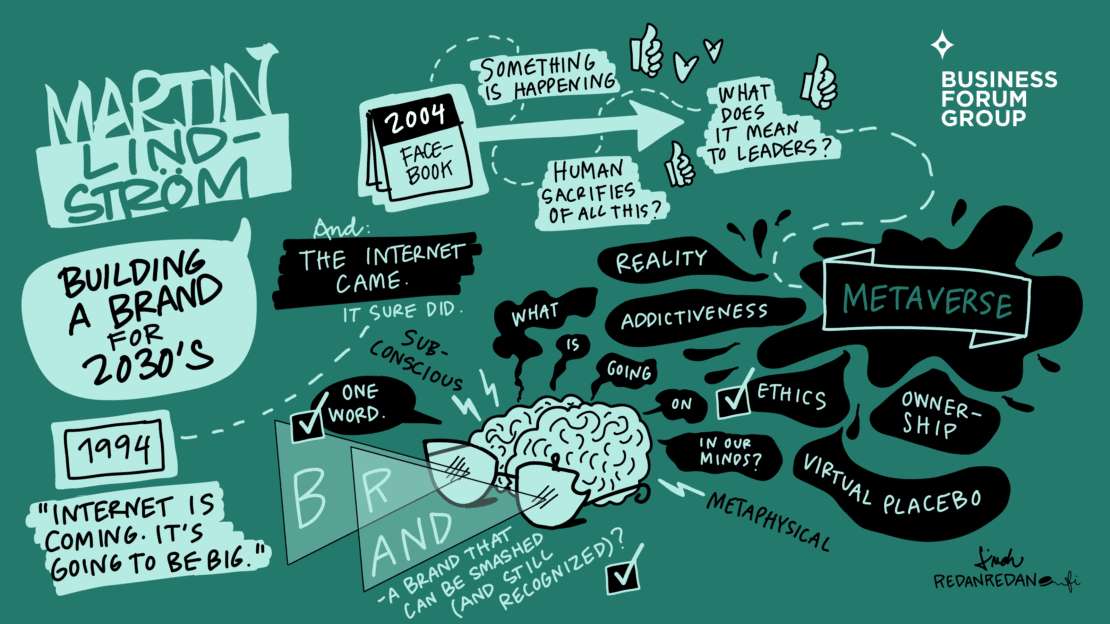 MARTIN
LIND-
STRÖM
BUILDING
A BRAND
FOR
2030'S
1994
"INTERNET IS
COMING. IT'S
GOING TO BE BIG."
And:
THE INTERNET
CAME.
IT SURE DID.
2004
FACE-
BOOK
SOMETHING
IS HAPPENING
HUMAN
SACRIFIES
OF ALL THIS?
WHAT
DOES
IT MEAN
TO LEADERS?
BUSINESS
FORUM
GROUP
METAVERSE
REALITY
ADDICTIVENESS
ETHICS
OWNER-
SHIP
VIRTUAL PLACEBO
SUB-
CONSCIOUS
WHAT
IS
GOING
ON
IN OUR
MINDS?
METAPHYSICAL
ONE
WORD.
BR
AND
-A BRAND THAT
CAN BE SMASHED
(AND STILL
RECOGNIZED)?
REDANREDAN